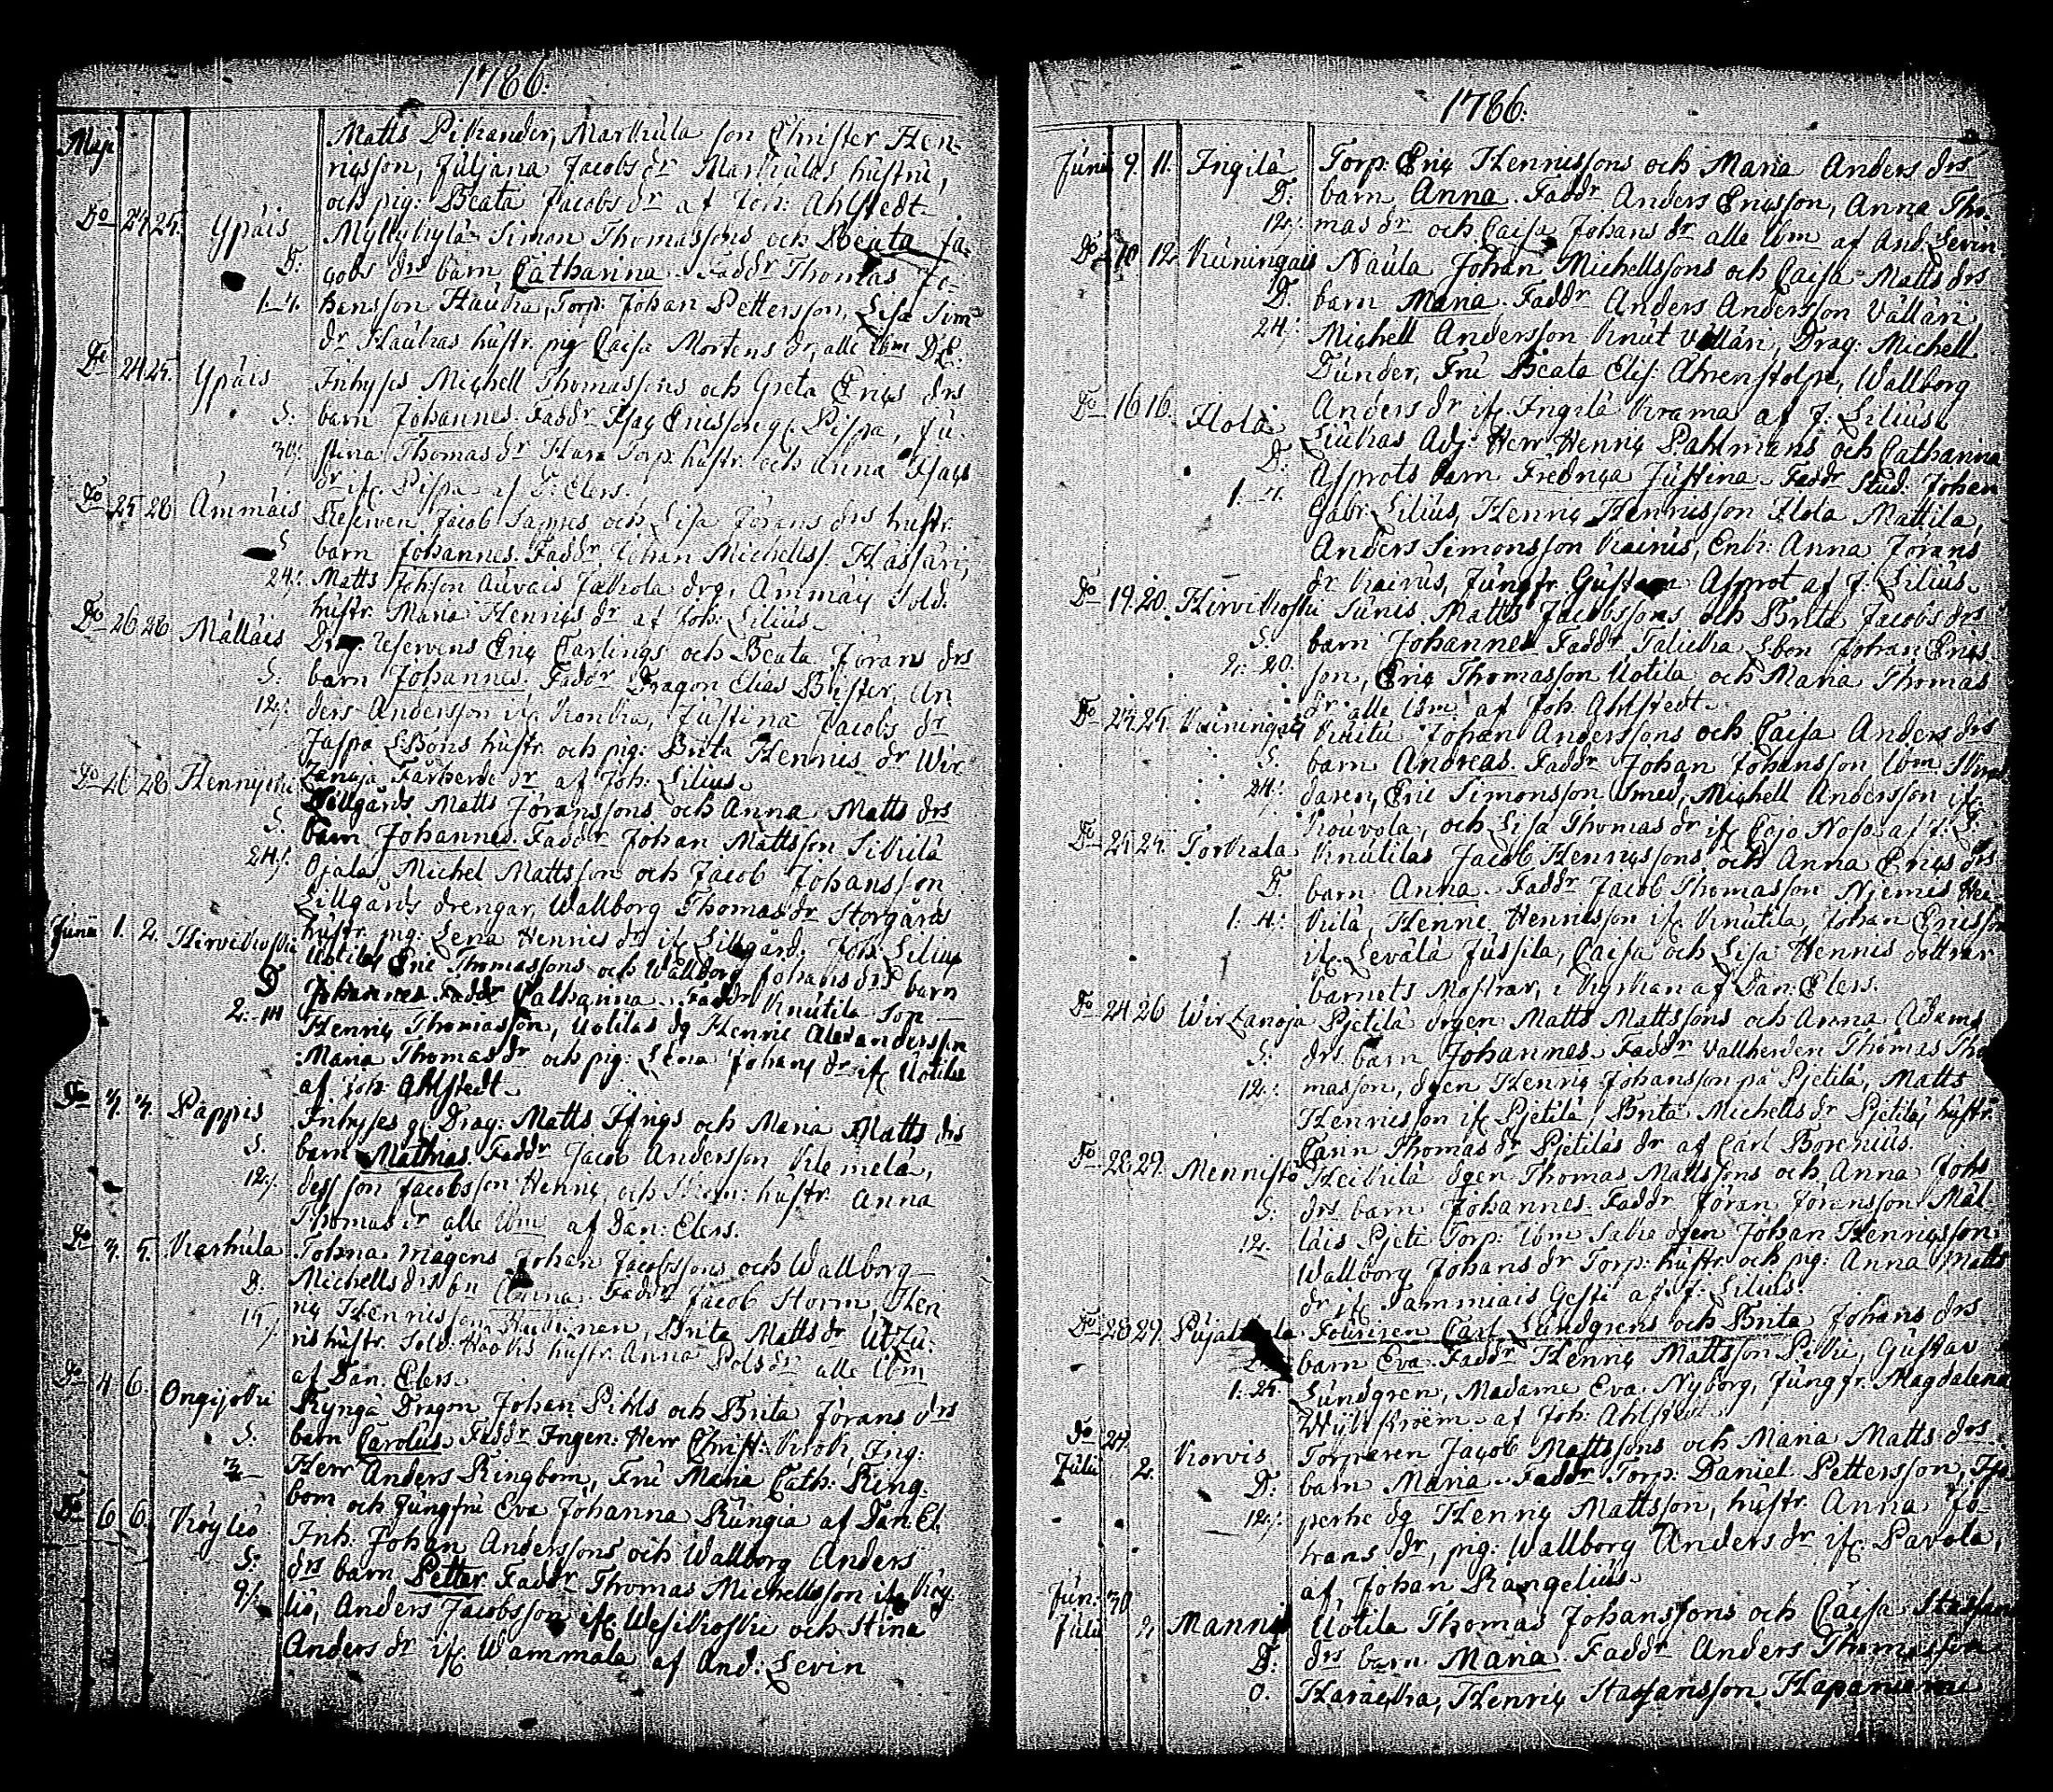 1786.
Maji
Matts Pihrander, Markula son Christer Hen-
ricsson, Juljana Jacobs dr Markulas hustru,
och pig: Beata Jacobs dr af Joh: Ahlstedt
Do 24 25. Ypäis Myllykylä Simon Thomassons och Beata Ja-
D: cobs drs barn Catharina. Faddr Thomas Jo-
1.4. hansson Hauka, Torp: Johan Pettersson, Lisa Sim
dr Haukas hustr. pig Caisa Mortens dr, alle ibm
Do 24 25. Ypäis Inhyses Michell Thomassons och Greta Erics drs
S: barn Johannes. Faddr Isac Ericsson Pispa, Ju-
30/. stina Thomas dr Hara Torp: hustr. och Anna Isacs
dr if. Pispa af D: Elers.
Do 25 28 Ammäis Jacob Sappes och Lisa Jörans drs hustr.
S barn Johannes. Faddr Johan Michellss. Hassari,
24/. Matts Johsson Auvais Jakola drg, Ammäis Sold.
hustr. Maria Henrics dr af Joh: Lilius.
Do 26 28 Mälläis Drag. reservens Eric Carlings och Beata Jörans drs
S: barn Johannes. Faddr Dragon Elias Blister, An
12/. ders Andersson if. Konkka, Justina Jacobs dr
Jaspa LBons hustr. och pig: Brita Henrics dr Wir
Zanoja Fårherde dr af Joh: Lilius.
Do 26 28 Lillgårds Matts Jöranssons och Anna Matts drs
S. barn Johannes. Faddr Johan Mattsson Sikilä
24/. Ojala, Michel Mattsson och Jacob Johansson
Lillgårds drengar, Wallborg Thomas dr Storgårds
hustr. pig: Lena Henrics dr if. Lillgård. Joh: Lilius
Junii 1. 2. Hirvikoski Uotilas Eric Thomassons och Wallborg Johans drs barn
D Catharina. Faddr Knutila Son
2. Henric Thomasson, Uotilas dg Henric Alexandersson
Maria Thomas dr och pig: Lena Johans dr if. Uotila
af Joh: Ahlstedt.
Do 3. 3. Pappis Inhyses Drag: Matts Isrigs och Maria Matts drs
S. barn Mathias. Faddr Jacob Andersson Klemelä,
12/. dess son Jacobsson Henric, och hustr. Anna
Thomas dr alle ibm af Dan: Elers.
Do 3. 5. Karhula Tohna mågens Johan Jacobssons och Wallborg
D: Michells drs bn Anna. Faddr Jacob Storm, Hen
15/. ric Henricsson, Brita Matts dr
hustr. Sold: hustr. Anna dr alle ibm
af Dan: Elers.
Do 4 6. Ongijoki Ryngä Dragon Johan Pihls och Brita Jörans drs
S: barn Carolus. Faddr Ingen: Herr Christ: Krook, Ing:
Herr Anders Ringbom, Fru Maria Cath: Ring-
bom och Jungfru Eva Johanna Rungia af Dan: El.
Do 6 6. Köyliö Inh: Johan Anderssons och Wallborg Anders
S: drs barn Petter. Faddr Thomas Michellsson if. Köy
9/. liö, Anders Jacobsson if. Wesikoski och Stina
Anders dr if. Wammala af And: Levin
1786.
Junii 9. 11. Ingilä Torp: Eric Henricssons och Maria Anders drs
D: barn Anna. Faddr Anders Ericsson, Anna Tho-
12/. mas dr och Caisa Johans dr alle ibm af And: Levin
Do 10 12. Kuningais Naula Johan Michellssons och Caisa Matts drs
D: barn Maria. Faddr Anders Andersson Vällari
24/. Michell Andersson Knut Vällari, Drag: Michell
Dunder, Fru Beata Elis: Ahrenstolpe, Wallborg
Anders dr if. Ingilä Krama af J: Lilius
Do 16 16. Hola Liukas Adj: Herr Henric Pahlmans och Catharina
D: Asprots barn Fredrica Justina. Faddr Stud: Johan
1. 4. Gabr: Lilius, Henric Henricsson Hola Mattila,
Anders Simonsson Kairus, Enk: Anna Jörans
dr Kairus, Jungfr. Gustava Asprot af J: Lilius.
Do 19. 20. Hirvikoski Sunis Matts Jacobssons och Brita Jacobs drs
S: barn Johannes. Faddr Talicka Lbon Johan Erics
2. 20. son, Eric Thomasson Uotila och Maria Thomas
dr alle ibm af Joh: Ahlstedt.
Do 25. Kuningais Johan Anderssons och Caisa Anders drs
S. barn Andreas. Faddr Johan Johansson ibm
24/. daren, Eric Simonsson Smed, Michell Andersson if.
Kouvola, och Lisa Thomas dr if. af J: L:
Do 25 25. Torkala Knutilas Jacob Henricssons och Anna Erics drs
D. barn Anna. Faddr Jacob Thomasson Niemis Hei
1. 4. kilä, Henric Henricsson if. Knutila, Johan Ericsson
if. Levälä Jussila, Caisa och Lisa Henrics döttrar
barnets Mostrar, i Kyrkan af Dan: Elers.
Do 24 26 Wir Zanoja Pjetilä drgen Matts Mattssons och Anna Adams
S: drs barn Johannes. Faddr Vallherden Thomas Tho
12/. masson, dgen Henric Johansson på Pjetilä, Matts
Henricsson if. Pjetilä, Brita Michells dr Pjetilä hustr.
Thomas dr Pjetiläs dr af Carl Borenius.
Do 28. 29. Mennistö Heikilä dgen Thomas Mattssons och Anna Joh:
S: drs barn Johannes. Faddr Jöran Jöransson Mäl
12. läis Pjeti Torp: ibm dgen Johan Henricsson
Wallborg Johans dr Torp: hustr. och pig: Anna Matts
dr if. Tammiais af J: Lilius.
Do 28 29. Carl Lundgrens och Brita Johans drs
barn Eva. Faddr Henric Mattsson Pitki, Gustav
1. 24. Lundgren, Madame Eva Nyborg, Jungfr. Magdalena
af Joh: Ahlstedt
Do 29. Korvis Torparen Jacob Mattssons och Maria Matts drs
Julii 2. D: barn Maria. Faddr Torp: Daniel Pettersson,
12/. dg Henric Mattsson, hustr. Anna Jo-
hans dr, pig: Wallborg Anders dr if. Pavola,
af Johan Rangelius.
Jun: 30
Julii 2 Mannis Uotila Thomas Johanssons och Caisa
D: drs barn Maria. Faddr Anders Thomasson
0. Henric Staffansson Hapaniemi